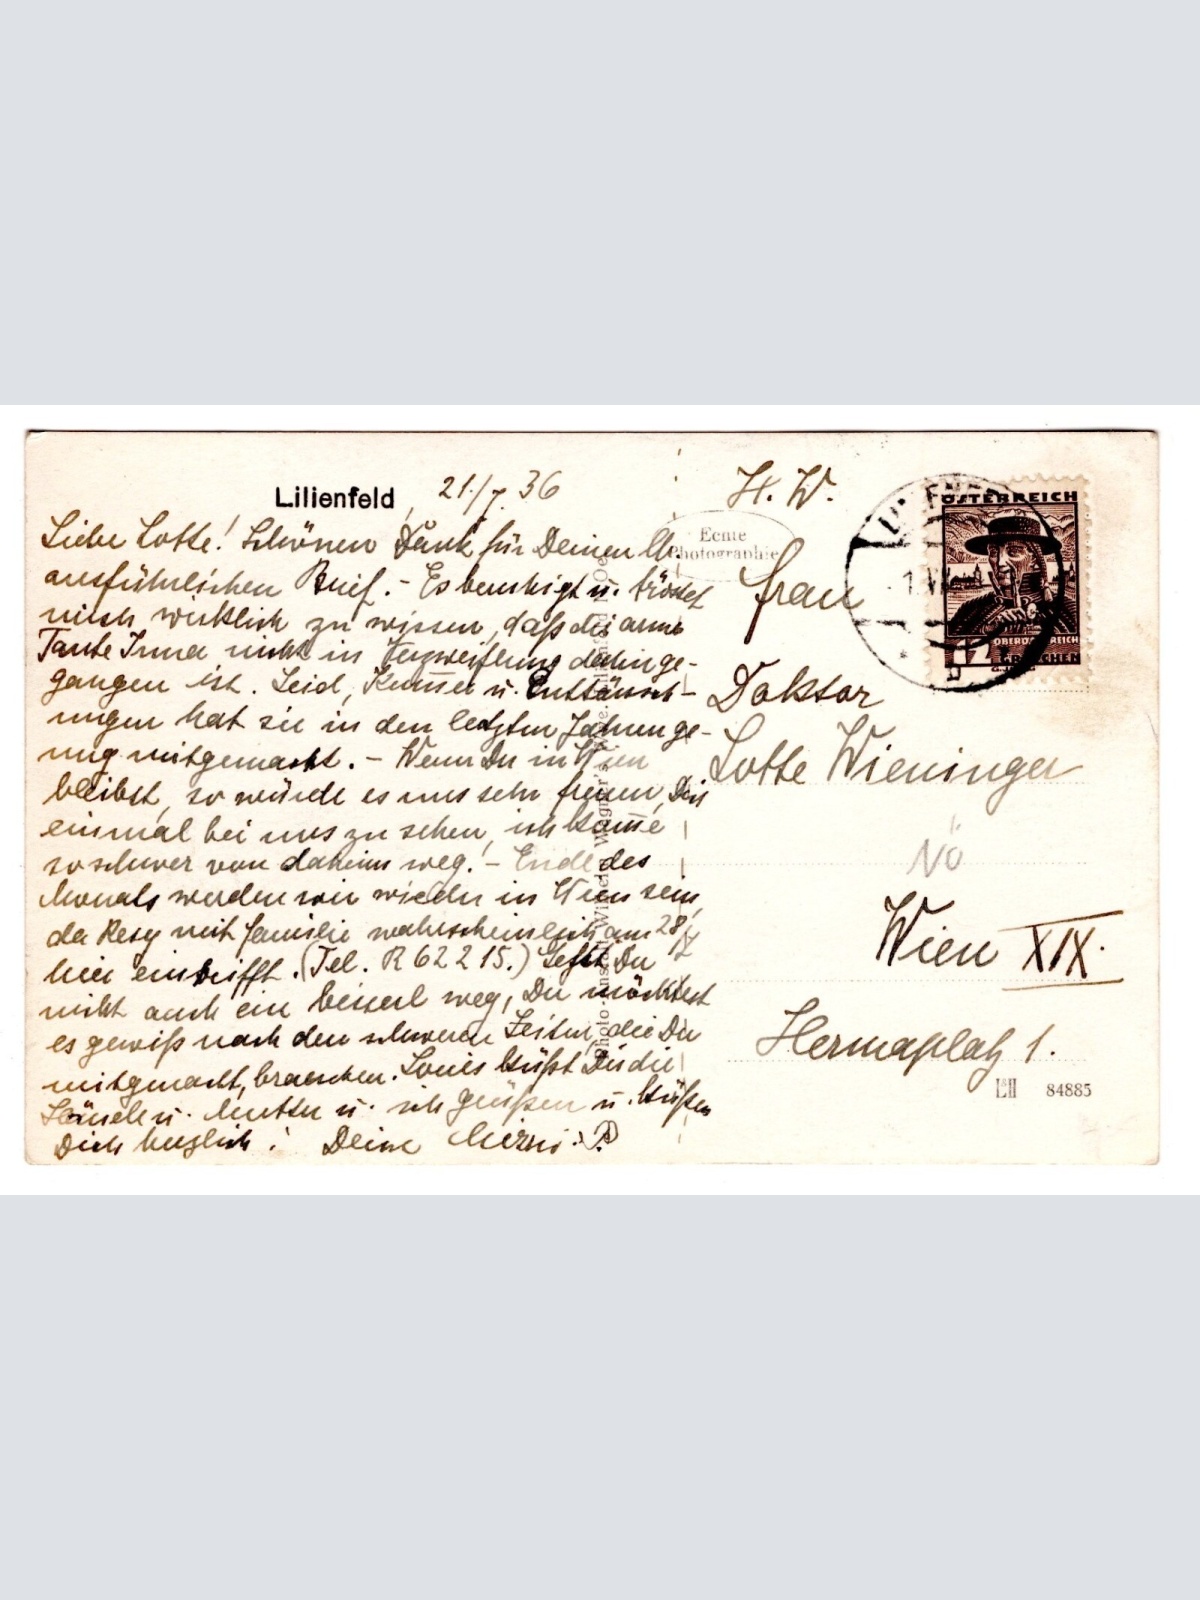 Lilienfeld, 21./7. 36
Liebe Lotte! Schönen Dank für Deinen lb.
ausführlichen Brief. - Es beruhigt u. tröstet
mich wirklich zu wissen, daß die arme
Tante Irma nicht in Verzweiflung dahinge-
gangen ist. Leid, Kum̅er u. Enttäusch-
ungen hat sie in den letzten Jahren ge-
nug mitgemacht. - Wenn Du in Wien
bleibst, so würde es uns sehr freuen, Dich
einmal bei uns zu sehen, ich kom̅e
so schwer von daheim weg. - Ende des
Monats werden wir wieder in Wien sein,
da Resy mit Familie wahrscheinlich am 28/7
hier eintrifft. (Tel. R 62 2 15.) Gehst Du
nicht auch ein bisserl weg, Du möchtest
es gewiß nach den schweren Zeiten, die Du
mitgemacht, brauchen. Louis küßt Dir die
Hände u. Mutter u. ich grüßen u. küßen
Dich herzlich! Deine
H. W.
Echte
Photographie
Frau
Doktor
Lotte Wieninger
NÖ
Wien XIX.
Hermaplatz 1.
LII 84885
ÖSTERREICH
OBERÖSTERREICH
GROSCHEN